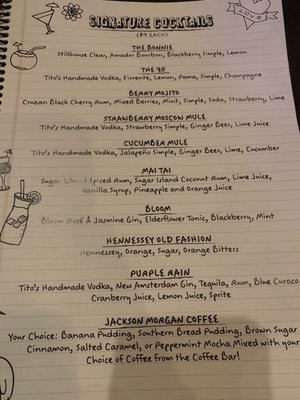 SIGNATURE COCKTAILS
($9 EACH)
THE BONNIE
Stillhouse Clear, Amador Bourbon, Blackberry Simple, Lemon
THE 75
Tito's Handmade Vodka, Fiorente, Lemon, Pama, Simple, Champagne
BERRY MOJITO
Cruzan Black Cherry Rum, Mixed Berries, Mint, Simple, Soda, Strawberry, Lime
STRAWBERRY MOSCOW MULE
Tito's Handmade Vodka, Strawberry Simple, Ginger Beer, Lime Juice
CUCUMBER MULE
Tito's Handmade Vodka, Jalapeño Simple, Ginger Beer, Lime, Cucumber
MAI TAI
Sugar Island Spiced Rum, Sugar Island Coconut Rum, Lime Juice,
Vanilla Syrup, Pineapple and Orange Juice
BLOOM
Bloom Rosé & Jasmine Gin, Elderflower Tonic, Blackberry, Mint
HENNESSEY OLD FASHION
Hennessey, Orange, Sugar, Orange Bitters
PURPLE RAIN
Tito's Handmade Vodka, New Amsterdam Gin, Tequila, Rum, Blue Curaco
Cranberry Juice, Lemon Juice, Sprite
JACKSON MORGAN COFFEE
Your Choice: Banana Pudding, Southern Bread Pudding, Brown Sugar
Cinnamon, Salted Caramel, or Peppermint Mocha Mixed with your
Choice of Coffee from the Coffee Bar!
LOVE